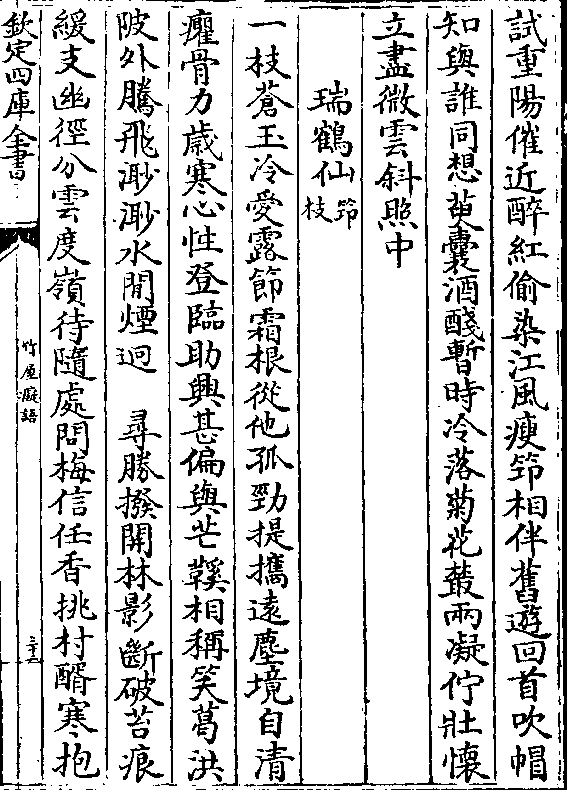 試重陽催近醉紅偷染江風瘦筇相伴舊遊回首吹帽
知與誰同想茰囊酒醆暫時冷落菊花叢兩凝佇壯懷
立盡微雲斜照中
瑞鶴仙筇枝
一枝蒼玉冷愛露節霜根從他孤勁提攜遠塵境自清
癯骨力歲寒心性登臨助興甚偏與芒鞵相稱笑葛洪
陂外騰飛渺渺水閒煙迥　尋勝撥開林影斷破苔痕
緩支幽徑分雲度嶺待隨處問梅信任香挑村醑寒抱
欽定四庫全書
竹屋癡語
三十三